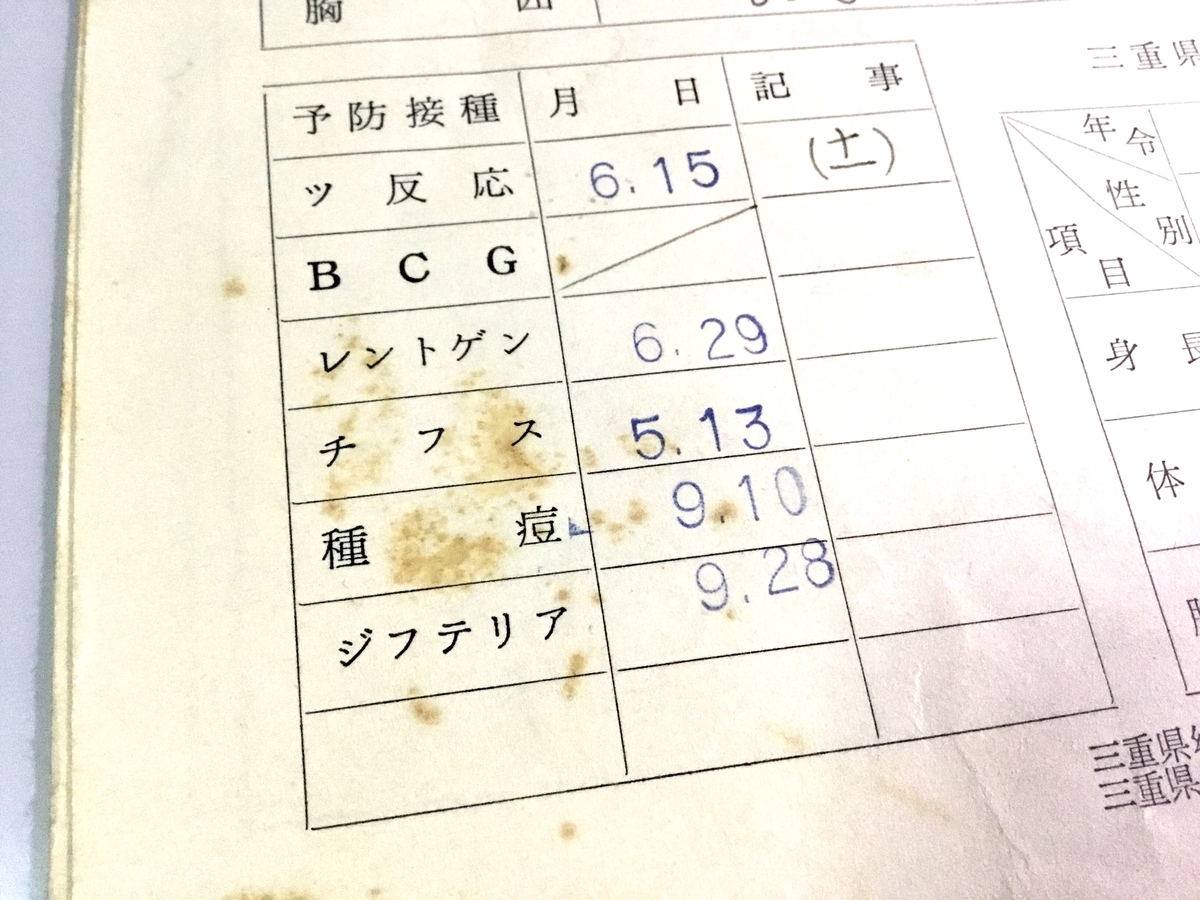 胸 囲
予防接種 月 日 記 事
ツ 反 応 6.15 (±)
B C G
レントゲン 6.29
チ フ ス 5.13
種 痘 9.10
ジフテリア 9.28
三重県
年令
性別
項目
身 長
体
三重県
三重県